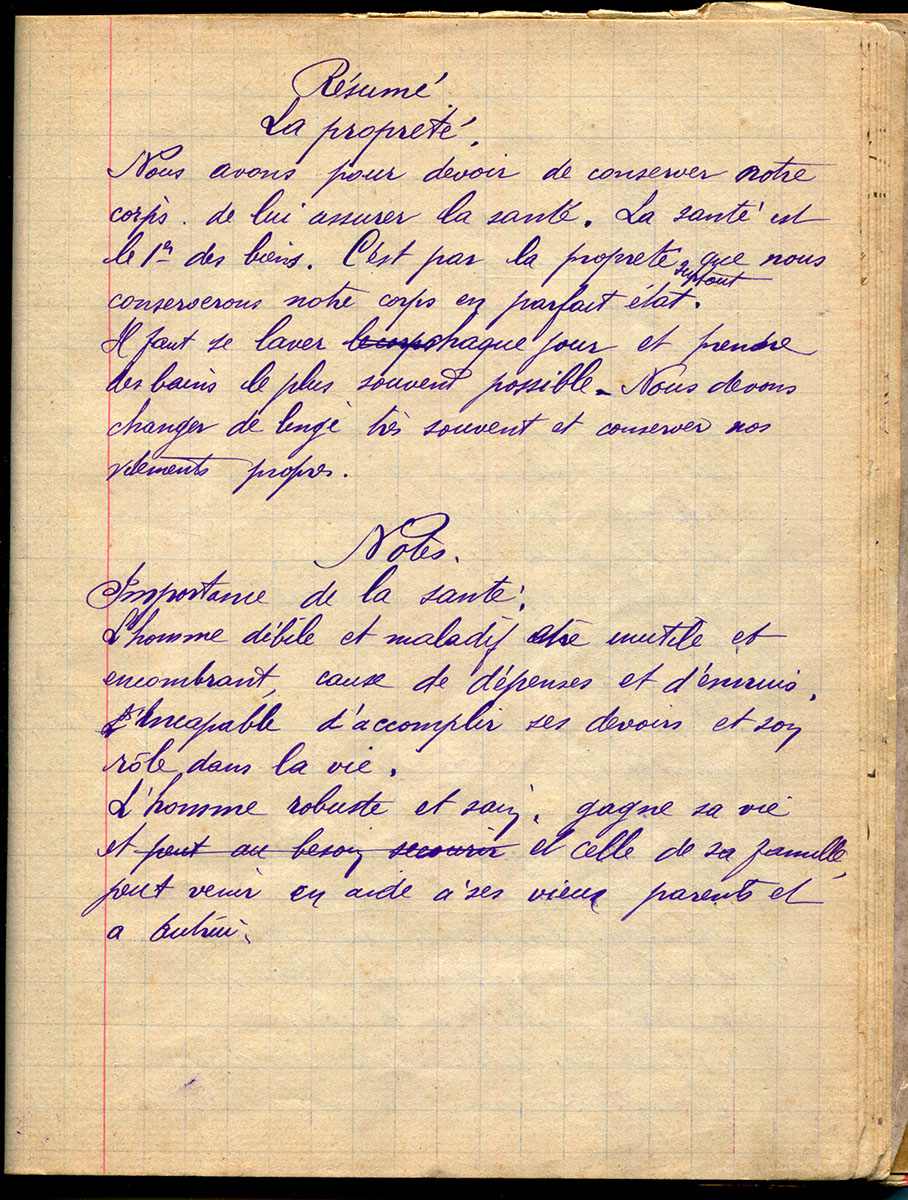 Résumé
La propreté.
Nous avons pour devoir de conserver notre
corps. de lui assurer la santé. La santé est
le 1er des biens. C'est par la propreté surtout que nous
conserverons notre corps en parfait état.
Il faut se laver le corps chaque jour et prendre
des bains le plus souvent possible. Nous devons
changer de linge très souvent et conserver nos
vêtements propres.
Notes.
Importance de la santé.
L'homme débile et maladif être inutile et
encombrant, cause de dépenses et d'ennuis.
Incapable d'accomplir ses devoirs et son
rôle dans la vie.
L'homme robuste et sain, gagne sa vie
et peut au besoin secourir et celle de sa famille,
peut venir en aide à ses vieux parents et
a autrui.